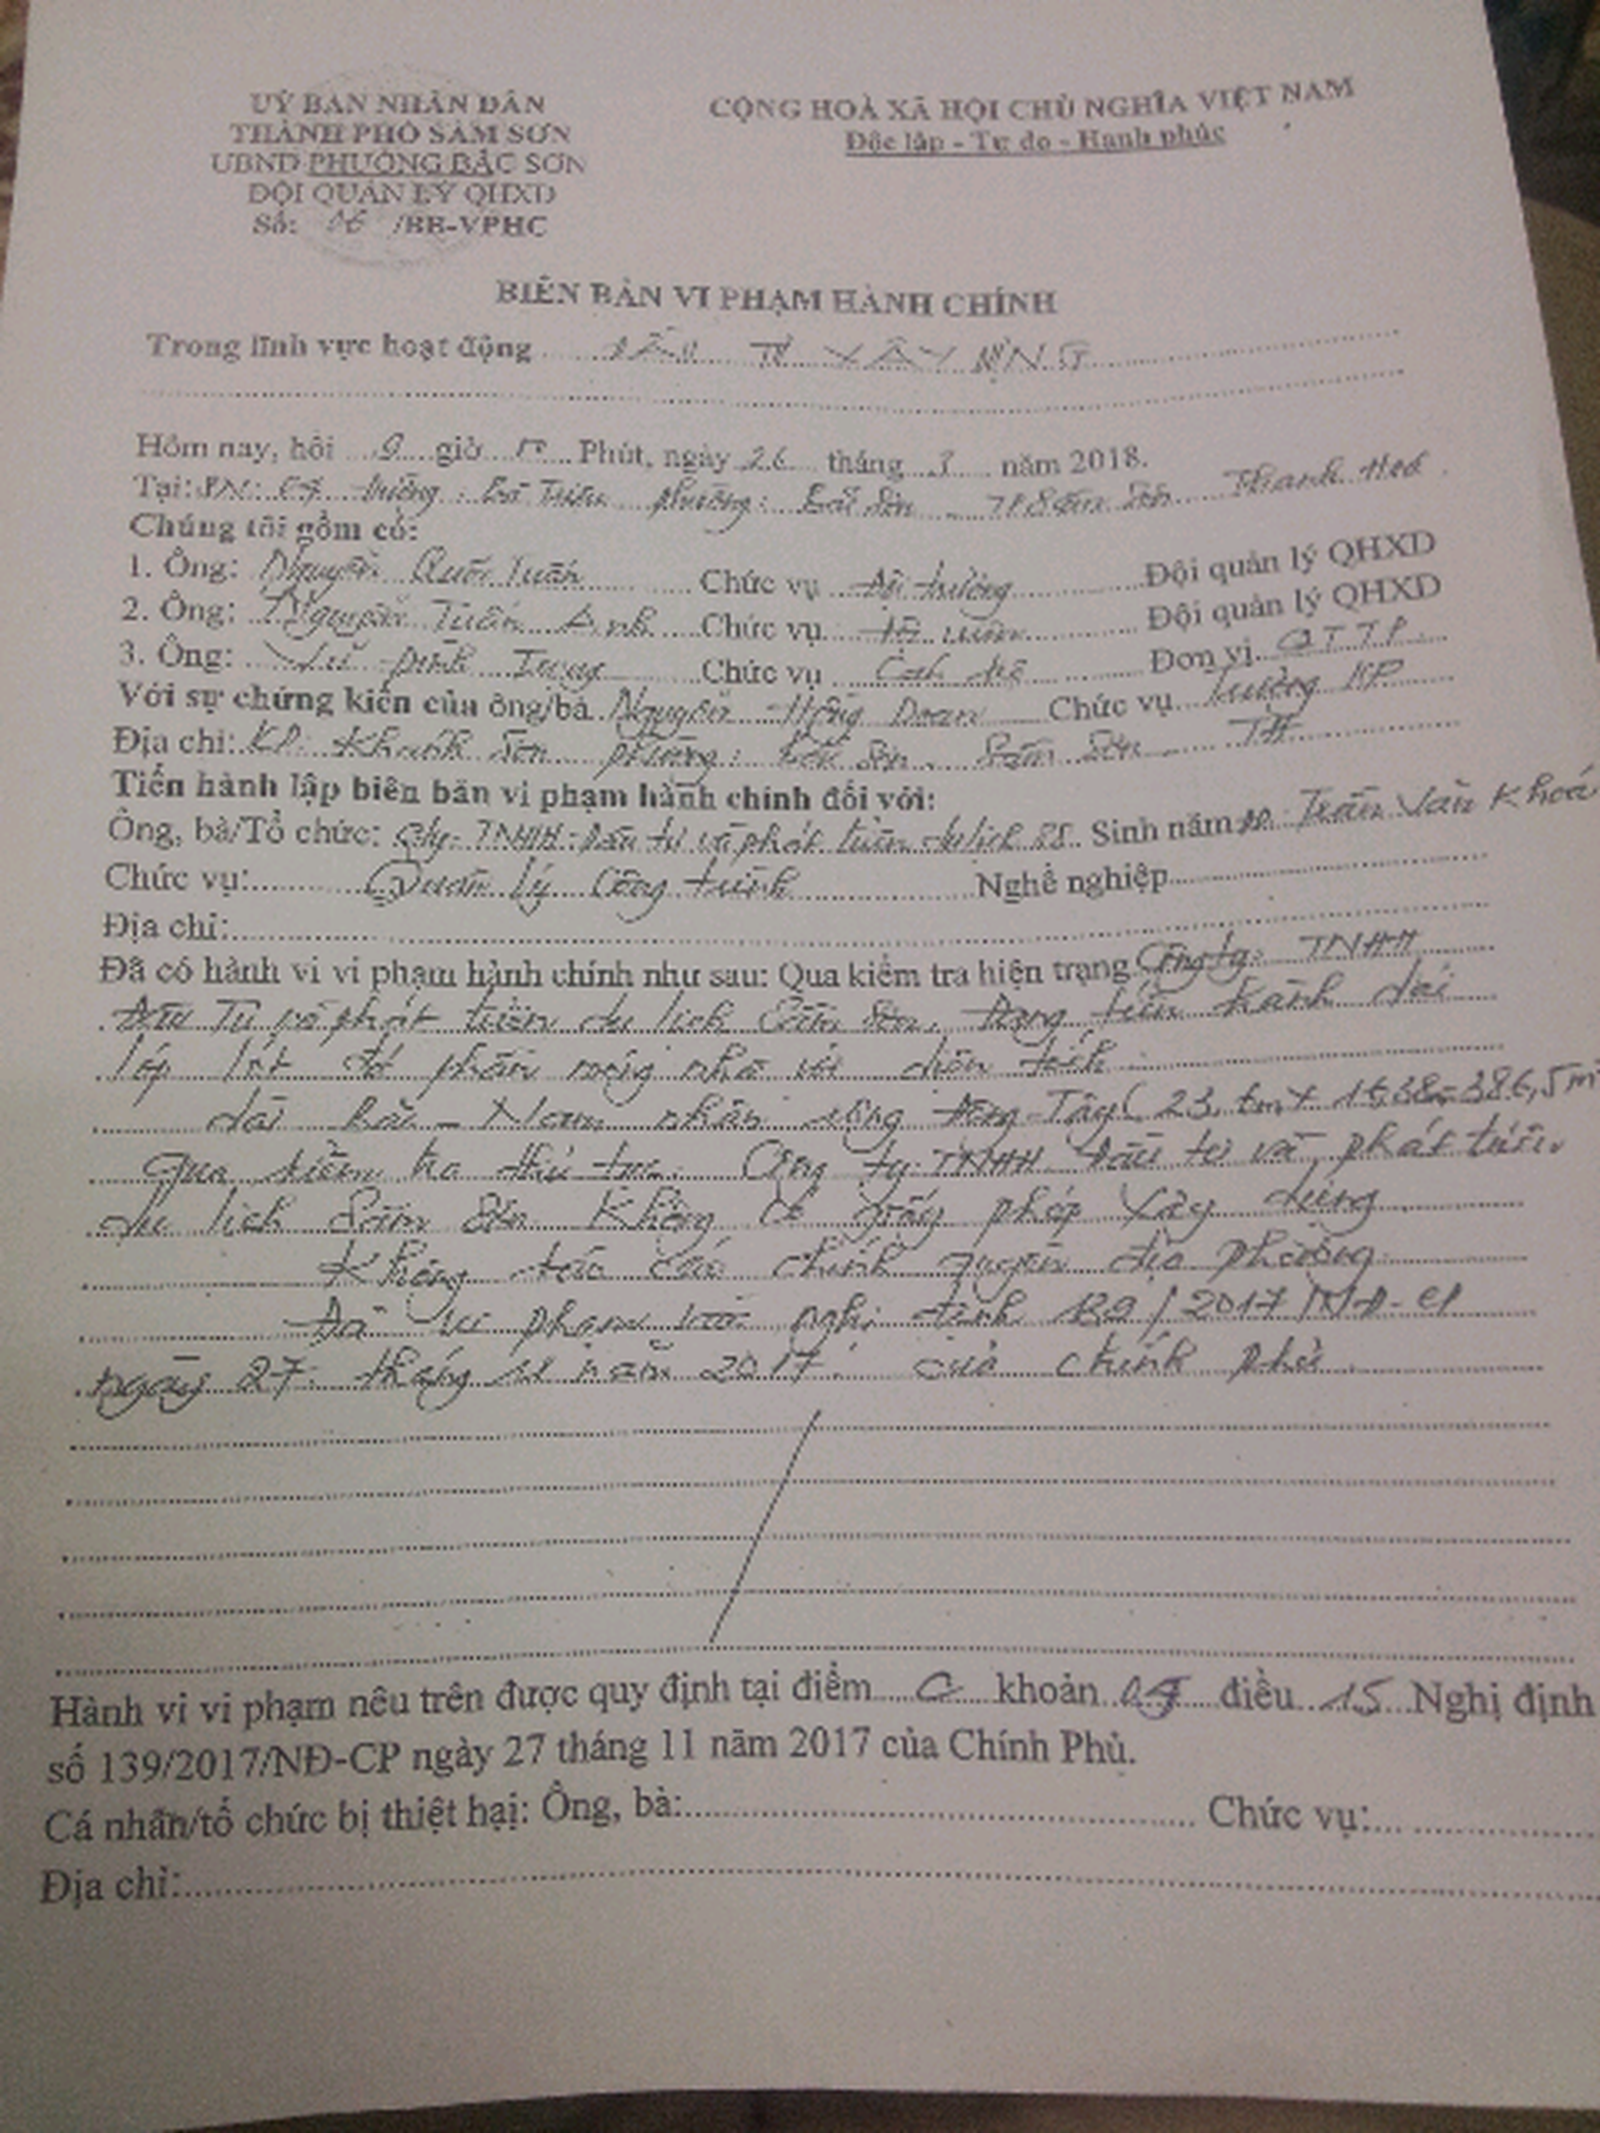 UỶ BAN NHÂN DÂN
THÀNH PHỐ SẦM SƠN
UBND PHƯỜNG BẮC SƠN
ĐỘI QUẢN LÝ QHXD
Số: 06 /BB-VPHC
CỘNG HOÀ XÃ HỘI CHỦ NGHĨA VIỆT NAM
Độc lập - Tự do - Hạnh phúc
BIÊN BẢN VI PHẠM HÀNH CHÍNH
Trong lĩnh vực hoạt động ĐẦU TƯ XÂY DỰNG
Hôm nay, hồi 9 giờ Phút, ngày 26 tháng năm 2018.
Tại: đường: Bà Triệu phường: Bắc Sơn TP Sầm Sơn Thanh Hoá
Chúng tôi gồm có:
1. Ông: Nguyễn Quốc Tuấn Chức vụ Đội trưởng Đội quản lý QHXD
2. Ông: Nguyễn Tuấn Anh Chức vụ Đội quản lý QHXD
3. Ông: Chức vụ Đơn vị QTTP
Với sự chứng kiến của ông/bà Nguyễn Hồng Doan Chức vụ Trưởng KP
Địa chỉ: KP: Khanh Sơn phường: Bắc Sơn. Sầm Sơn TH
Tiến hành lập biên bản vi phạm hành chính đối với:
Ông, bà/Tổ chức: Cty: TNHH: Đầu tư và phát triển du lịch SS. Sinh năm Trần Văn Khoá
Chức vụ: Quản Lý Công trình Nghề nghiệp
Địa chỉ:
Đã có hành vi vi phạm hành chính như sau: Qua kiểm tra hiện trạng Công ty: TNHH
Đầu Tư và phát triển du lịch Sầm Sơn. Đang tiến hành
lớp lót đổ phần móng nhà với diện tích
dài Bắc - Nam nhân rộng Đông - Tây ( 386,5m
Qua kiểm tra thủ tục. Công ty TNHH Đầu tư và phát triển
du lịch Sầm Sơn Không có giấy phép Xây dựng
Không báo cáo chính quyền địa phương
Đã vi phạm vào nghị định 139/2017/NĐ-CP
ngày 27 tháng 11 năm 2017 của chính phủ
Hành vi vi phạm nêu trên được quy định tại điểm khoản điều 15 Nghị định
số 139/2017/NĐ-CP ngày 27 tháng 11 năm 2017 của Chính Phủ.
Cá nhân/tổ chức bị thiệt hại: Ông, bà: Chức vụ:
Địa chỉ: